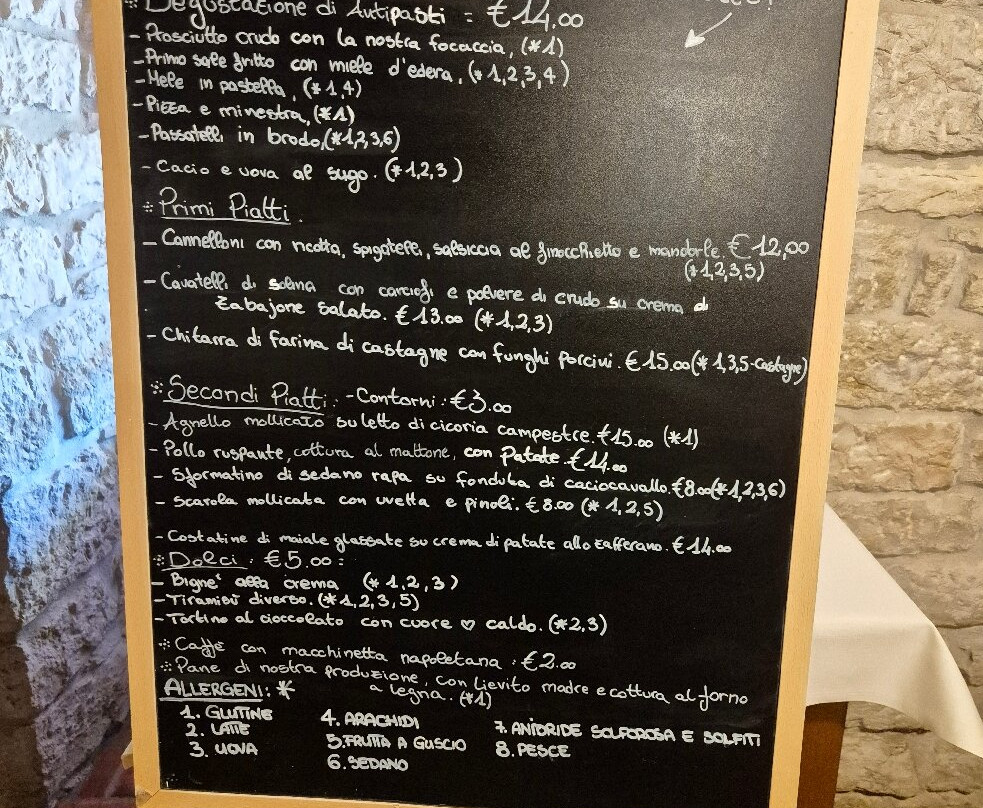 Degustazione di Antipasti = €14,00
- Prosciutto crudo con la nostra focaccia, (*1)
- Primo sale fritto con miele d'edera, (*1,2,3,4)
- Mele in pastella, (*1,4)
- Pizza e minestra, (*1)
- Passatelli in brodo, (*1,2,3,6)
- Cacio e uova al sugo. (*1,2,3)
Primi Piatti.
- Cannelloni con ricotta, spigatelli, salsiccia al finocchietto e mandorle. €12,00
(*1,2,3,5)
- Cavatelli di semola con carciofi e polvere di crudo su crema di
Zabajone salato. €13.00 (*1,2,3)
- Chitarra di farina di castagne con funghi porcini. €15.00 (*1,3,5-castagne)
Secondi Piatti: - Contorni: €3.00
- Agnello mollicato su letto di cicoria campestre. €15.00 (*1)
- Pollo ruspante, cottura al mattone, con Patate. €14.00
- Sformatino di sedano rapa su fonduta di caciocavallo. €8.00 (*1,2,3,6)
- Scarola mollicata con uvetta e pinoli. €8.00 (*1,2,5)
- Costatine di maiale glassate su crema di patate allo zafferano. €14.00
Dolci: €5.00:
- Bigne' alla crema (*1,2,3)
- Tiramisù diverso. (*1,2,3,5)
- Tortino al cioccolato con cuore ♡ caldo. (*2,3)
Caffè con macchinetta napoletana: €2.00
Pane di nostra produzione, con lievito madre e cottura al forno
a legna. (*1)
ALLERGENI: *
1. GLUTINE
2. LATTE
3. UOVA
4. ARACHIDI
5. FRUTTA A GUSCIO
6. SEDANO
7. ANIDRIDE SOLFOROSA E SOLFITI
8. PESCE